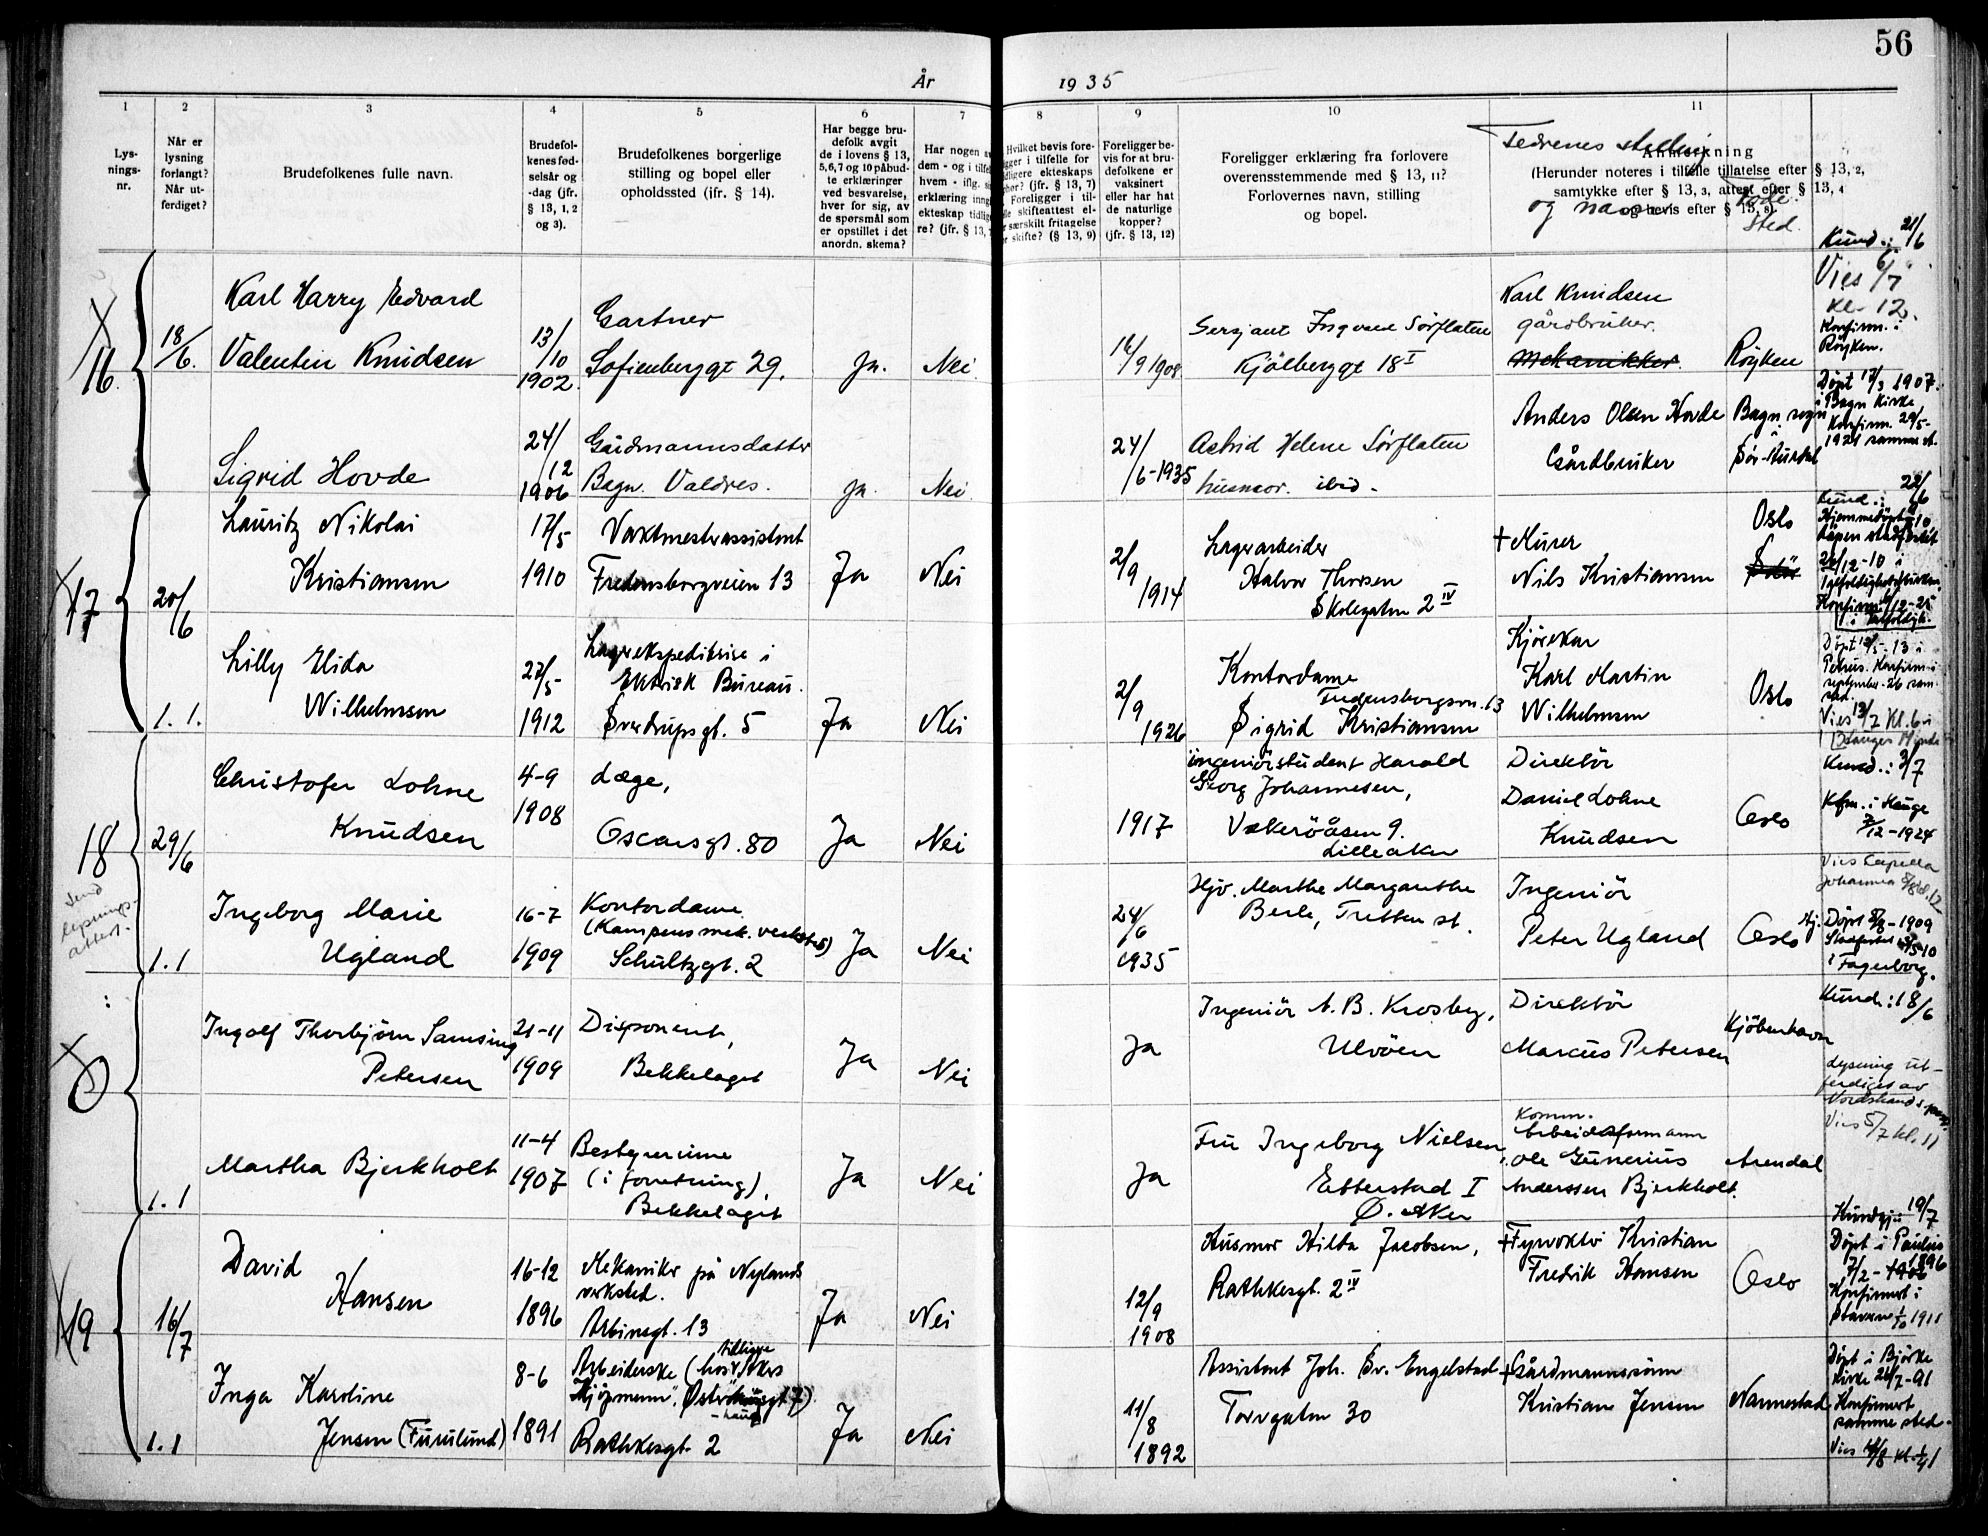 56
År 1935
1
2
3
4
5
6
7
8
9
10
11
Lys-
nings-
nr.
Når er
lysning
forlangt?
Når ut-
ferdiget?
Brudefolkenes fulle navn.
Brudefol-
kenes fød-
selsår og
-dag (jfr.
§ 13, 1, 2
og 3).
Brudefolkenes borgerlige
stilling og bopel eller
opholdssted (ifr. § 14).
Har begge bru-
defolk avgit
de i lovens § 13,
5,6,7 og 10 påbud-
te erklæringer
ved besvarelse,
hver for sig, av
de spørsmål som
er opstillet i det
anordn. skema?
Har nogen
dem - og i
hvem - iflg.
erklæring
ekteskap
re? (jfr. § 13,
Hvilket bevis fore-
i tilfelle for
ekteskaps
(jfr. § 13, 7)
Foreligger i til-
skifteattest el-
særskilt fritagelse
skifte? (§ 13, 9)
Foreligger be-
vis for at bru-
defolkene er
vaksinert
eller har hat
de naturlige
kopper?
(jfr. § 13, 12)
Foreligger erklæring fra forlovere
overensstemmende med § 13, 11?
Forlovernes navn, stilling
og bopel.
Fedrenes stilling
Anmerkning
(Herunder noteres i tilfelle tillatelse efter § 13, 2,
samtykke efter § 13, 3, attest efter § 13, 4
og bevis efter § 13, 8).
og navn
Føde-
sted.
16.
18/6.
Karl Harry Edvard
Valentin Knudsen
13/10
1902.
Gartner
Sofienberggt 29.
Ja.
Nei.
16/9 1908
Sersjant Ingvald Sørflaten
Kjølberggt 18 I
Karl Knudsen
gårdbruker.
Mekanikker.
Røyken
Kund.: 21/6
Vies 6/7
kl. 12.
Konfirm. i
Røyken.
Sigrid Hovde
24/12
1906
Gårdmannsdatter
Bagn. Valdres.
Ja.
Nei
24/6-1935
Astrid Helene Sørflaten
husmor. ibid.
Anders Olsen Hovde
Gårdbruker
Bagn sogn
Sør-Aurdal
Døpt 17/3 1907.
i Bagn Kirke
Konfirm. 29/5-
1921 samme st.
17
20/6
1.1.
Lauritz Nikolai
Kristiansen
17/5
1910
Vaktmesterassistent
Fredensborgveien 13
Ja
Nei
2/9
1914
Lagerarbeider
Halvor Thorsen
Skolegaten 2 IV
+ Murer
Nils Kristiansen
Oslo
Kund.: 22/6
Hjemmedøpt
Lilly Elida
Wilhelmsen
27/5-
1912
Lagerekspeditrise i
Elektrisk Bureau.
Sverdrupsgt. 5
Ja
Nei
2/9
1926
Kontordame
Fredensborgvn. 13
Sigrid Kristiansen
Kjørekar
Karl Martin
Wilhelmsen
Oslo
Døpt 12/5-13 i
Petrus. Konfirm. i
september -26 sam.
sted.
Vies 13/7 Kl. 6 i
18
29/6
1.1
Send
lysnings-
attest.
Christofer Lohne
Knudsen
4-9
1908
Læge,
Oscarsgt. 80
Ja
Nei
1917
ingeniørstudent Harald
Georg Johannesen,
Vækeröåsen 9.
Lilleaker
Direktör
Daniel Lohne
Knudsen
Oslo
Kund.: 3/7
Kfm. i Hauge
7/12-1924
Vies Capella
Johannea
Ingeborg Marie
Ugland
16-7
1909
Kontordame
(Kampens mek. verksted)
Schultzgt. 2
Ja
Nei
24/6
1935
Hjv. Marthe Margarethe
Berle, Tretten st.
Ingeniör
Peter Ugland
Oslo
Hj. Døpt 8/8-1909
i Fagerborg.
0
1.1
Ingolf Thorbjørn Samsing
Petersen
21-11
1909
Disponent,
Bekkelaget
Ja
Nei
Ja
Ingeniör A. B. Krosby,
Ulvöen
Direktör
Marcus Petersen
Kjöbenhavn
Kund.: 18/6
Lysning ut-
ferdiget av
Nordstrands
Vies 5/7 kl. 11
Martha Bjerkholt
11-4
1907
Bestyrerinne
(i forretning),
Bekkelaget
Ja
Nei
Ja
Fru Ingeborg Nielsen,
Etterstad I
Ø. Aker
Komm.
Arbeidsformann
Ole Gunerius
Anderssen Bjerkholt.
Arendal
19
16/7
1.1
David
Hansen
16-12
1896
Mekaniker på Nylands
verksted.
Arbinsgt. 13
Ja
Nei
12/9
1908
Husmor Hilda Jacobsen,
Rathkesgt. 2 IV
+ Fyrvokter Kristian
Fredrik Hansen
Oslo
Kundgj.: 19/7
Døpt i Paulus
7/2-1896
Konfirmert i
Stavern 1/10 1911
Inga Karoline
Jensen (Furulund)
8-6
1891
tidligere
Arbeiderske (hos
Rathkesgt. 2
Ja
Nei
11/8
1892
Assistent Joh. Sv. Engelstad
Torvgaten 30
+ Gårdmannssønn
Kristian Jensen
Nannestad
Døpt i Bjørke
kirke 26/7-91
Konfirmert
samme sted.